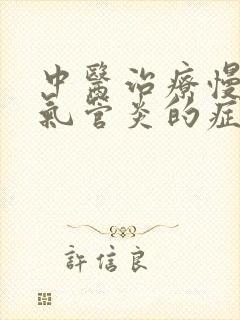 中醫治療慢
氣管炎的症
許信良